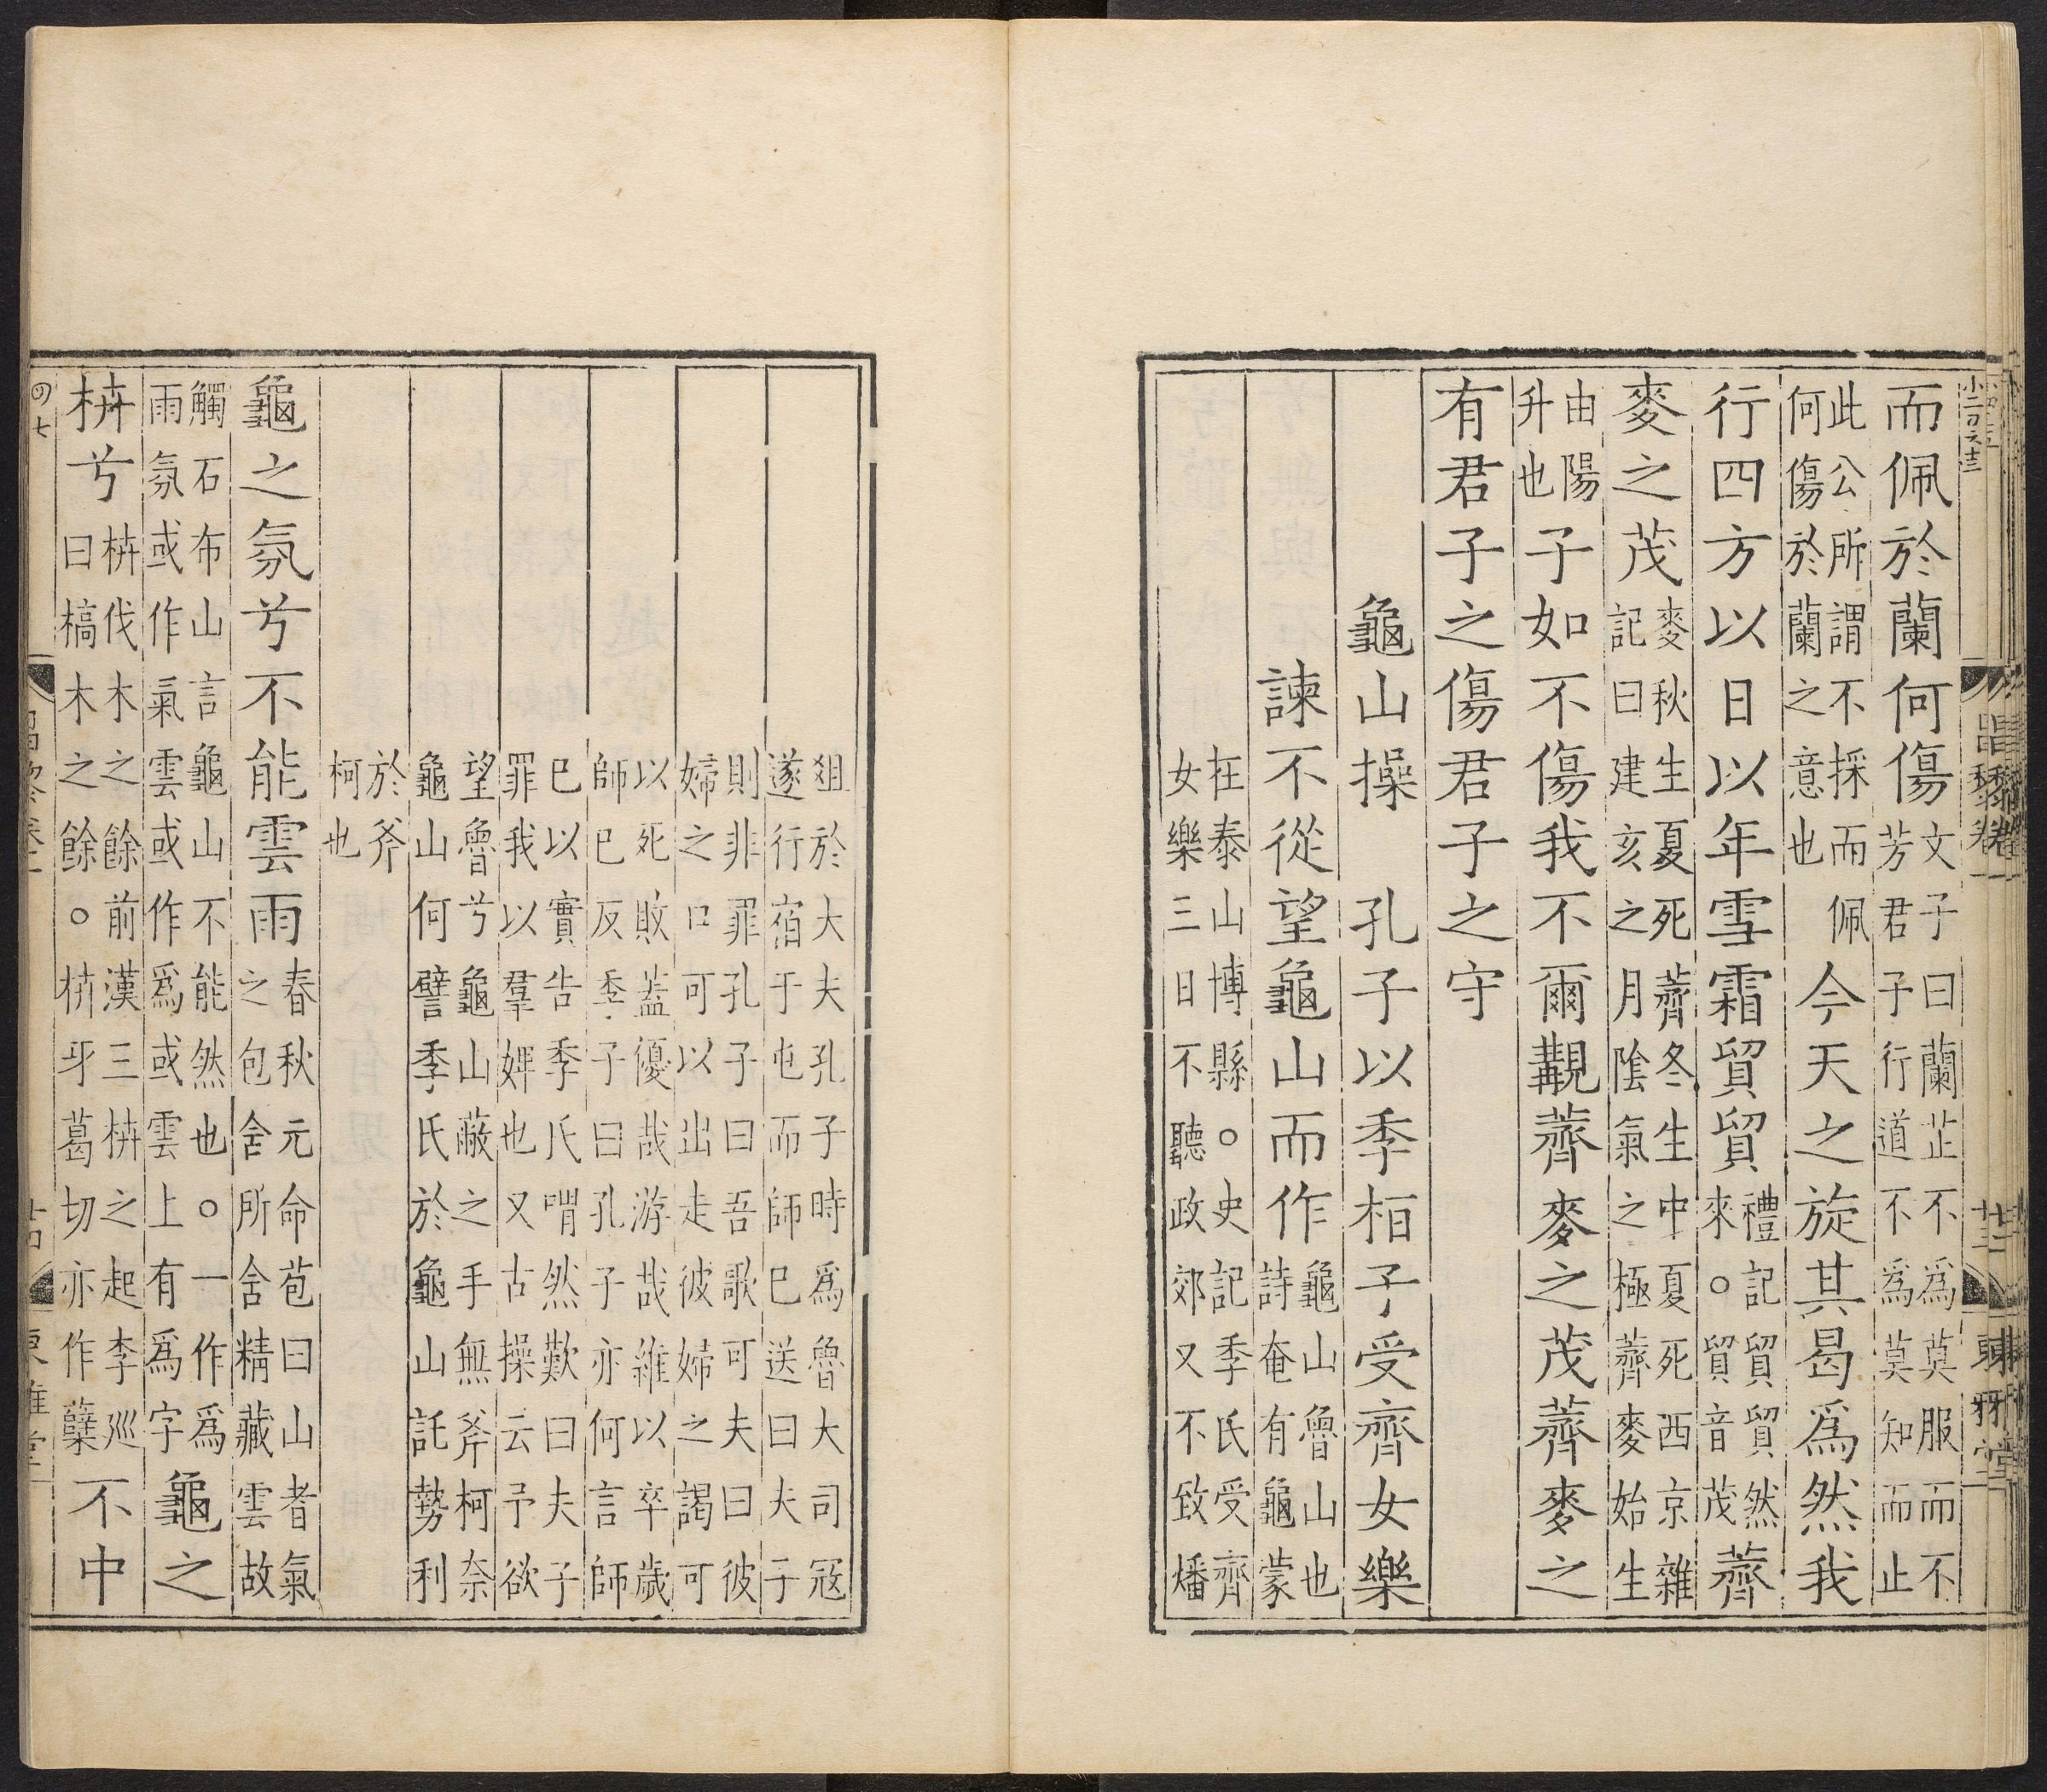 昌黎卷一 廿三 東雅堂
而佩於蘭何傷文子曰蘭芷不爲莫服而不芳君子行道不爲莫知而止
此公所謂不採而佩何傷於蘭之意也今天之旋其曷爲然我
行四方以日以年雪霜貿貿禮記貿貿然來。貿音茂薺
麥之茂麥秋生夏死薺冬生中夏死西京雜記曰建亥之月陰氣之極薺麥始生
由陽升也子如不傷我不爾覯薺麥之茂薺麥之
有君子之傷君子之守
龜山操 孔子以季桓子受齊女樂
諫不從望龜山而作龜山魯山也詩奄有龜蒙
在泰山博縣。史記季氏受齊女樂三日不聽政郊又不致燔
俎於大夫孔子時爲魯大司冦遂行宿于屯而師已送曰夫子
則非罪孔子曰吾歌可夫曰彼婦之口可以出走彼婦之謁可
以死敗蓋優哉游哉維以卒歲師已反季子曰孔子亦何言師
已以實告季氏喟然歎曰夫子罪我以羣婢也又古操云予欲
望魯兮龜山蔽之手無斧柯奈龜山何譬季氏於龜山託勢利
於斧柯也
龜之氛兮不能雲雨春秋元命苞曰山者氣之包舍所舍精藏雲故
觸石布山言龜山不能然也。一作爲雨氛或作氣雲或作爲或雲上有爲字龜之
枿兮枿伐木之餘前漢三枿之起李巡曰槁木之餘。枿牙葛切亦作蘖不中